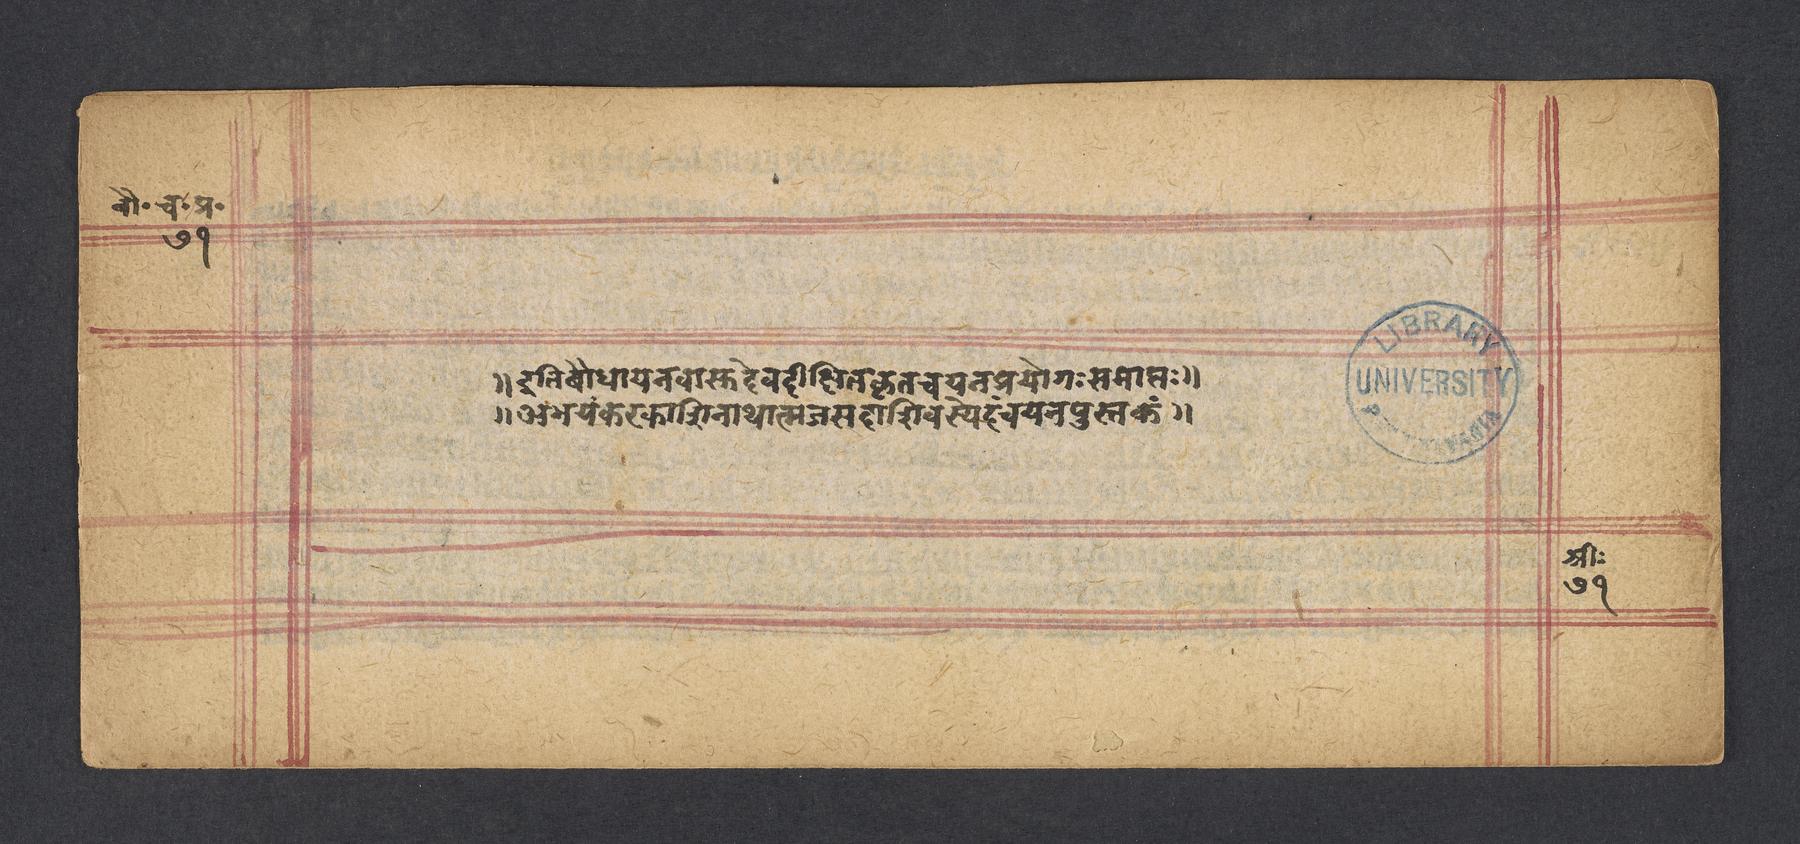 बौ॰ च॰ प्र॰
७१
॥इतिबौधायनवास्तदेवदीक्षितकृतचयनप्रयोगःसमाप्तः॥
॥अभयंकरकाशिनाथात्मजसदाशिवस्येदंचयनपुस्तकं॥
LIBRARY
UNIVERSITY
PENNSYLVANIA
श्रीः
७१